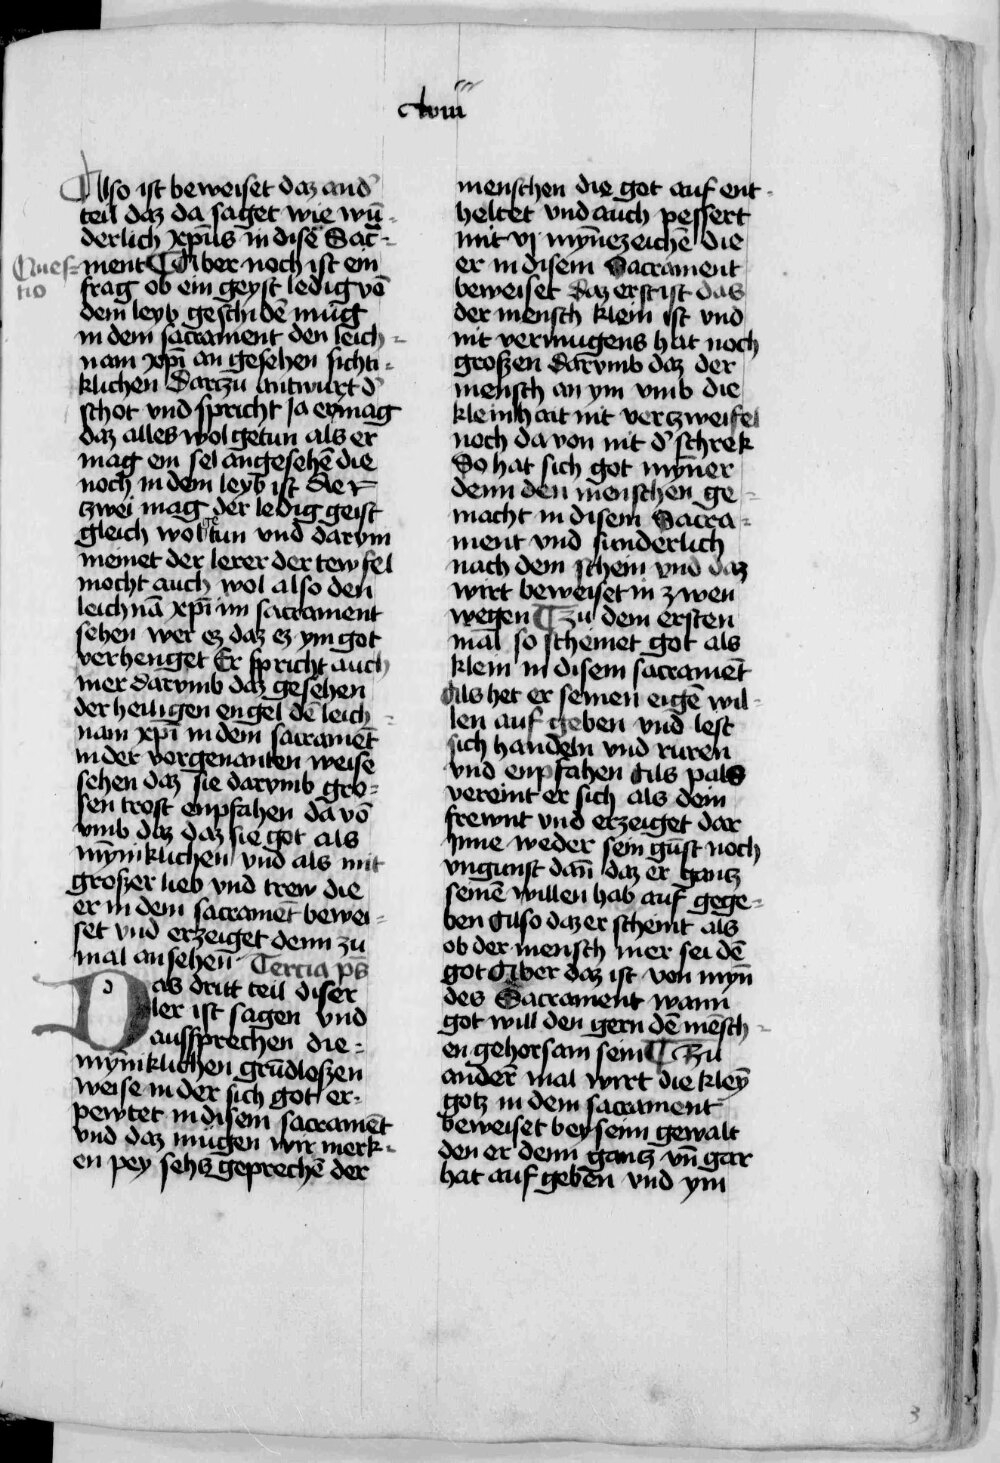 xviii
Also ist beweiset daz and᷑
teil daz da saget wie wū-
derlich xp̄us in disē Sac̄-
Ques-
tio
ment Aber noch ist ein
frag ob ein geyst ledig vō
dem leyb geschidē mūg
in dem sacrament den leich-
nam xp̄i an gesehen sichti-
klichen Dartzu antwurt d᷑
schot vnd spricht Ja er mag
daz alles wol getun als er
mag ein sel angesehē die
noch in dem leyb ist der
tzwei mag der ledig geist
gleich wol getun vnd darvm
meinet der lerer der tewfel
mocht auch wol also den
leichnā xp̄i im sacrament
sehen wer ez daz ez ym got
verhenget Er spricht auch
mer darvmb daz gesehen
der heiligen engel dē leich-
nam xp̄i in dem sacramēt
in der vorgenanten weise
sehen daz sie darvmb gro-
sen trost enpfahen da vō
vmb daz daz sie got als
mȳniklichen vnd als mit
groszer lieb vnd trew die
er in dem sacramēt bewei-
set vnd erzeiget denn zu
mal an sehen̄ Tercia p̄s
Das dritt teil diser
ler ist sagen vnd
aussprechen die-
mȳniklichen grūdloszen
weise in der sich got er-
pewtet in disem sacramēt
vnd daz mūgen wir merk-
en pey sehs geprechē der
menschen die got auf ent-
heltet vnd auch pessert
mit vj mȳnezeichē die
er in disem Sacrament
beweiset Daz erst ist das
der mensch klein ist vnd
nit vermugens hat noch
groszen Darvmb daz der
mensch an ym vmb die
kleinhait nit vertzweifel
noch da von nit d᷑schrek
So hat sich got myn̄er
denn den menschen ge-
macht in disem Sacra-
ment vnd sunderlich
nach dem schein vnd daz
wirt beweiset in zwen
wegen Tzu dem ersten
mal so scheinet got als
klein in disem sacramēt
als het er seinen eigē wil-
len auf geben vnd lest
sich handeln vnd ruren
vnd enpfahen Als pald
vereint er sich als dein
frewnt vnd erzeiget dar
ynne weder sein gūst noch
vngunst dan̄ daz er gantz
seinē willen hab auf gege-
ben Also daz er scheint als
ob der mensch mer sei dē
got Aber daz ist von myn̄
des Sacrament wann
got will den gern dē mēsch-
en gehorsam sein Tzu
anderē mal wirt die kleȳ
gotz in dem sacrament
beweiset bey seim gewalt
den er denn gantz vn̄ gar
hat auf gebēn vnd ym
3